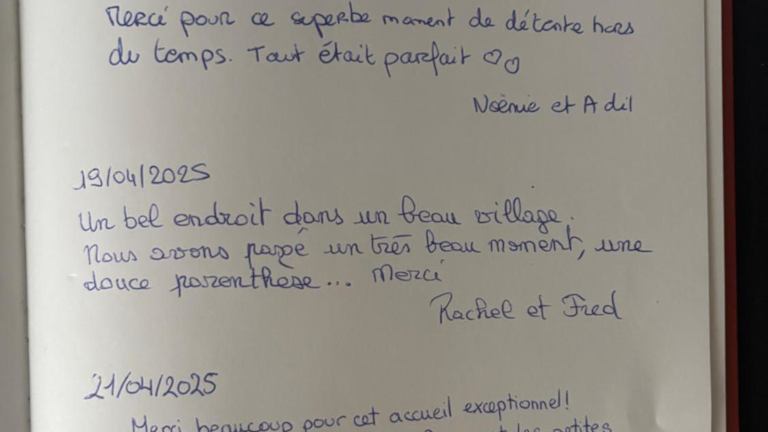 Merci pour ce superbe moment de détente hors
du temps. Tout était parfait ♡♡
Noémie et Adil
19/04/2025
Un bel endroit dans un beau village.
Nous avons passé un très beau moment, une
douce parenthèse... Merci
Rachel et Fred
21/04/2025
Merci beaucoup pour cet accueil exceptionnel!
les petites